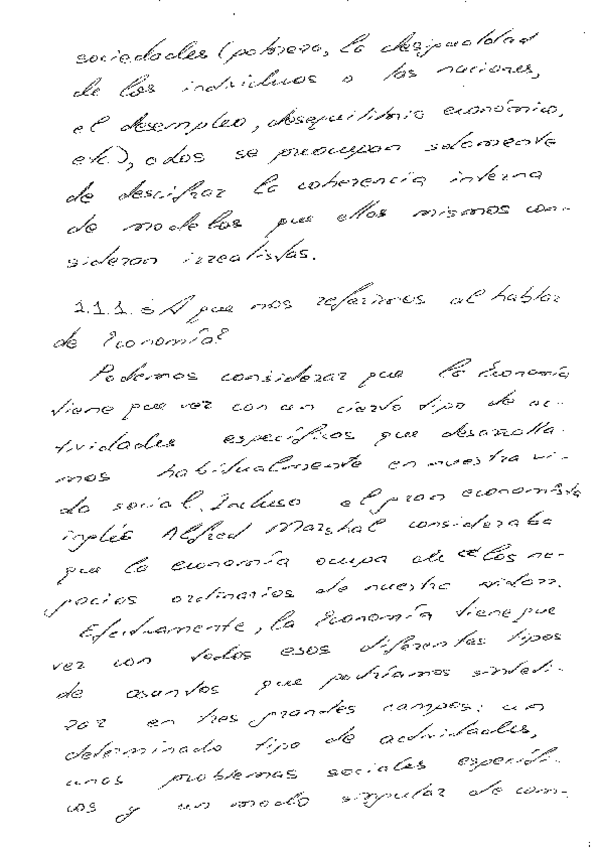 sociedades (pobreza, la desigualdad
de los individuos o las naciones,
el desempleo, desequilibrio económico,
etc.), o los se preocupan solamente
de descifrar la coherencia interna
de modelos que ellos mismos con-
sideran irrealistas.
1.1.1. ¿A que nos referimos al hablar
de Economía?
Podemos considerar que la Economía
tiene que ver con un cierto tipo de ac-
tividades específicas que desarrolla-
mos habitualmente en nuestra vi-
da social. Incluso el gran economista
inglés Alfred Marshal consideraba
que la economía ocupa de "los ne-
gocios ordinarios de nuestra vida".
Efectivamente, la Economía tiene que
ver con todos esos diferentes tipos
de asuntos que podríamos sinteti-
zar en tres grandes campos: un
determinado tipo de actividades,
unos problemas sociales específi-
cos y un modo singular de com-